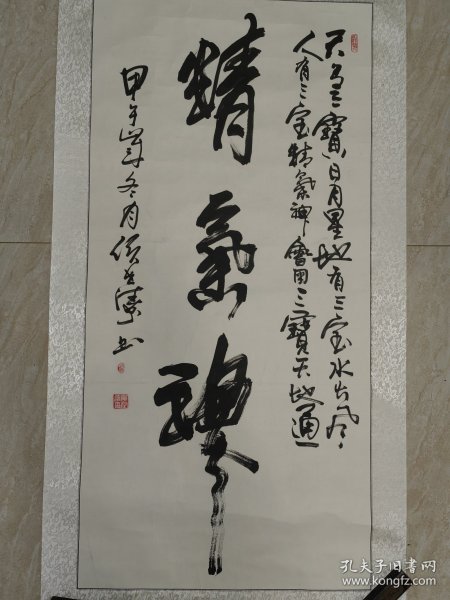 天有三寶日月星地有三宝水火风
人有三宝精氣神會用三寶天地通
精氣神
甲午年冬月
书
孔夫子旧书网
www.kongfz.com